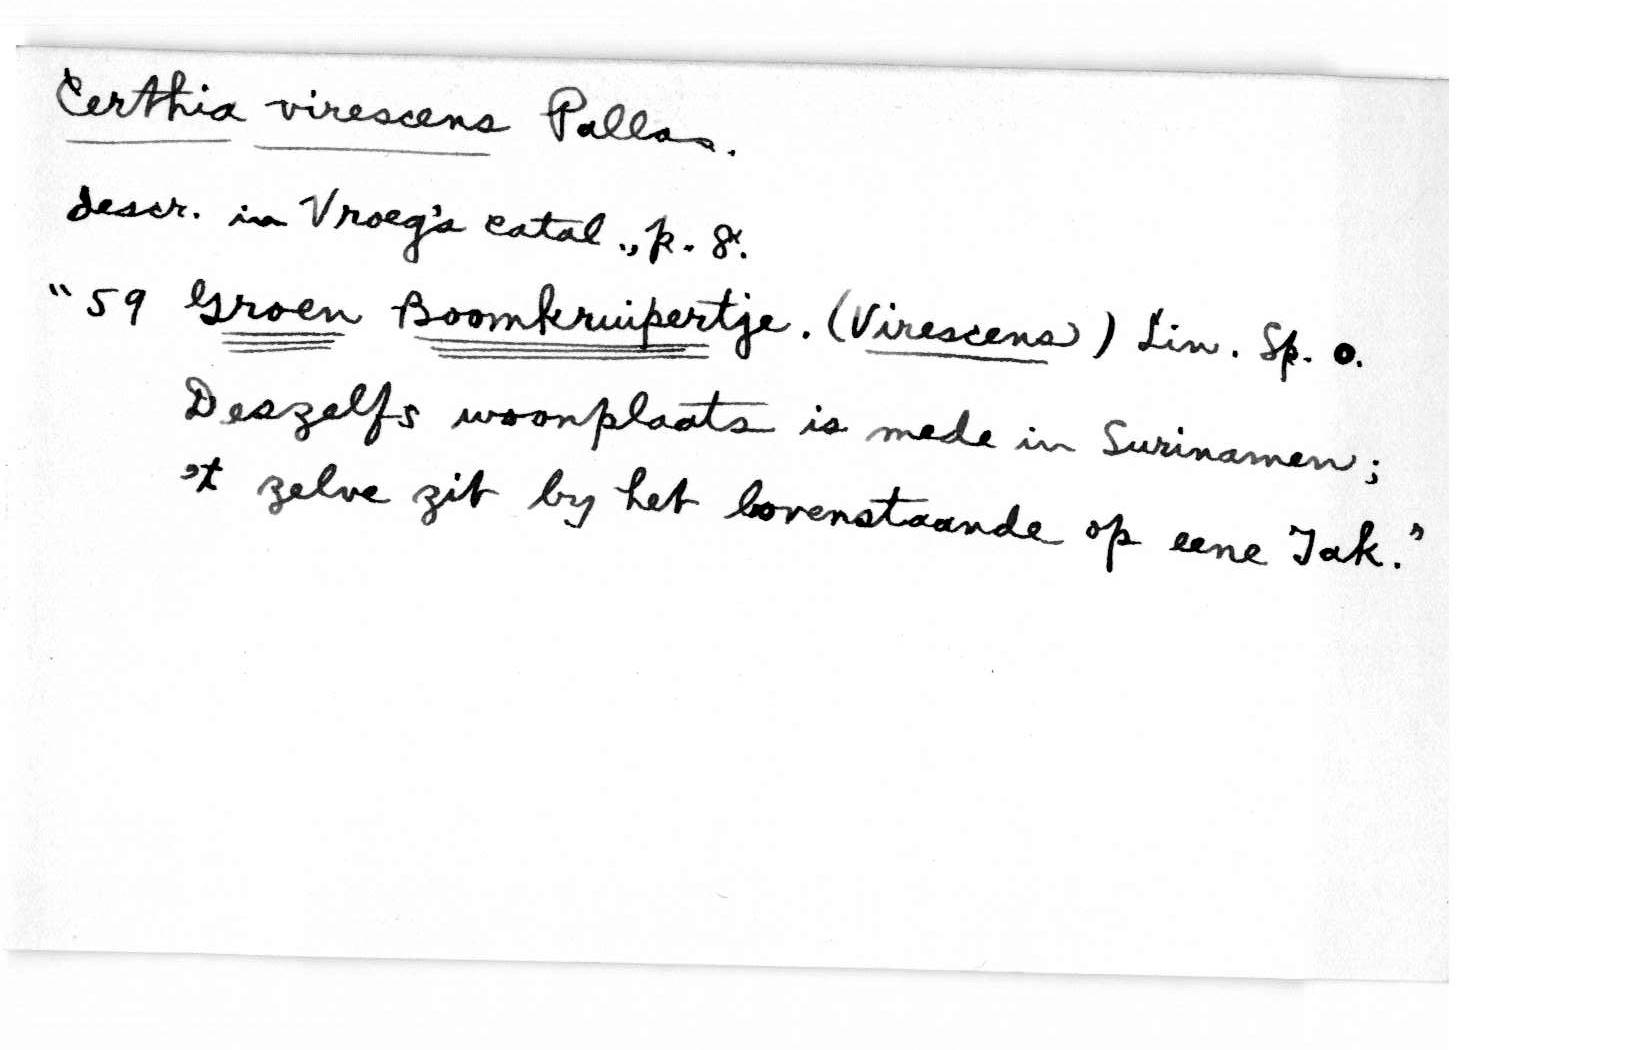 Certhia virescens Pallas.
descr. in Vroeg's catal., p. 8.
"59 Groen Boomkruipertje. (Virescens) Lin. Sp. o.
Deszelfs woonplaats is mede in Surinamen;
't zelve zit by het bovenstaande op eene Tak."